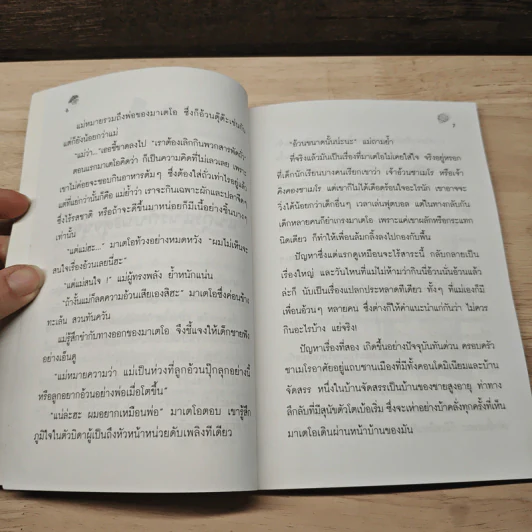 6
แม่หมายรวมถึงพ่อของมาเตโอ ซึ่งก็อ้วนตุ๊ต๊ะเช่นกัน
แต่ก็ยังน้อยกว่าแม่
"แม่ว่า..." เธอชี้ขาดลงไป "เราต้องเลิกกินพวกสารพัดถั่ว"
ตอนแรกมาเตโอคิดว่า ก็เป็นความคิดที่ไม่เลวเลย เพราะ
เขาไม่ค่อยจะชอบกินอาหารต้มๆ ซึ่งต้องใส่ถั่วเท่าไรอยู่แล้ว
แต่ที่แย่กว่านั้นก็คือ แม่ย้ำว่า เราจะกินเฉพาะผักและปลาจืดๆ
ซึ่งไร้รสชาติ หรือถ้าจะดีขึ้นมาหน่อยก็มีเนื้อย่างชิ้นบางๆ
เท่านั้น
"แต่แม่ฮะ..." มาเตโอท้วงอย่างหมดหวัง "ผมไม่เห็นจะ
สนใจเรื่องอ้วนเลยนี่ฮะ"
"แต่แม่สนใจ !" แม่ผู้ทรงพลัง ย้ำหนักแน่น
"ถ้างั้นแม่ก็ลดความอ้วนเสียเองสิฮะ" มาเตโอซึ่งค่อนข้าง
ทะเล้น สวนทันควัน
แม่รู้สึกขำกับทางออกของมาเตโอ จึงชี้แจงให้เด็กชายฟัง
อย่างเอ็นดู
"แม่หมายความว่า แม่เป็นห่วงที่ลูกอ้วนปุ๊กลุกอย่างนี้
หรือลูกอยากอ้วนอย่างพ่อเมื่อโตขึ้น"
"แน่ล่ะฮะ ผมอยากเหมือนพ่อ" มาเตโอตอบ เขารู้สึก
ภูมิใจในตัวบิดาผู้เป็นถึงหัวหน้าหน่วยดับเพลิงทีเดียว
7
"อ้วนขนาดนั้นน่ะนะ" แม่ถามย้ำ
ที่จริงแล้วมันเป็นเรื่องที่มาเตโอไม่เคยใส่ใจ จริงอยู่หรอก
ที่เด็กนักเรียนบางคนเรียกเขาว่า เจ้าอ้วนชาเมโร หรือเจ้า
คิงคองชาเมโร แต่เขาก็ไม่ได้เดือดร้อนใจอะไรนัก เขาอาจจะ
วิ่งได้น้อยกว่าเด็กอื่นๆ เวลาเล่นฟุตบอล แต่ในทางกลับกัน
เด็กหลายคนก็ยำเกรงมาเตโอ เพราะแค่เขาผลักหรือกระแทก
นิดเดียว ก็ทำให้เพื่อนล้มกลิ้งลงไปกองกับพื้น
ปัญหาซึ่งแต่แรกดูเหมือนจะไร้สาระนี้ กลับกลายเป็น
เรื่องใหญ่ และวันไหนที่แม่ไม่ห้ามว่ากินนี่อ้วนนั่นอ้วนแล้ว
ล่ะก็ นับเป็นเรื่องแปลกประหลาดทีเดียว ทั้งๆ ที่แม่เองก็มี
เพื่อนอ้วนๆ หลายคน ซึ่งต่างก็ให้คำแนะนำแก่กันว่า ไม่ควร
กินอะไรบ้าง แย่จริง!
ปัญหาเรื่องที่สอง เกิดขึ้นอย่างปัจจุบันทันด่วน ครอบครัว
ชาเมโรอาศัยอยู่แถบชานเมืองที่มีทั้งคอนโดมิเนียมและบ้าน
จัดสรร หนึ่งในบ้านจัดสรรเป็นบ้านของชายสูงอายุ ท่าทาง
ลึกลับที่มีสุนัขตัวโตเบ้อเริ่ม ซึ่งจะเห่าอย่างบ้าคลั่งทุกครั้งที่เห็น
มาเตโอเดินผ่านหน้าบ้านของมัน